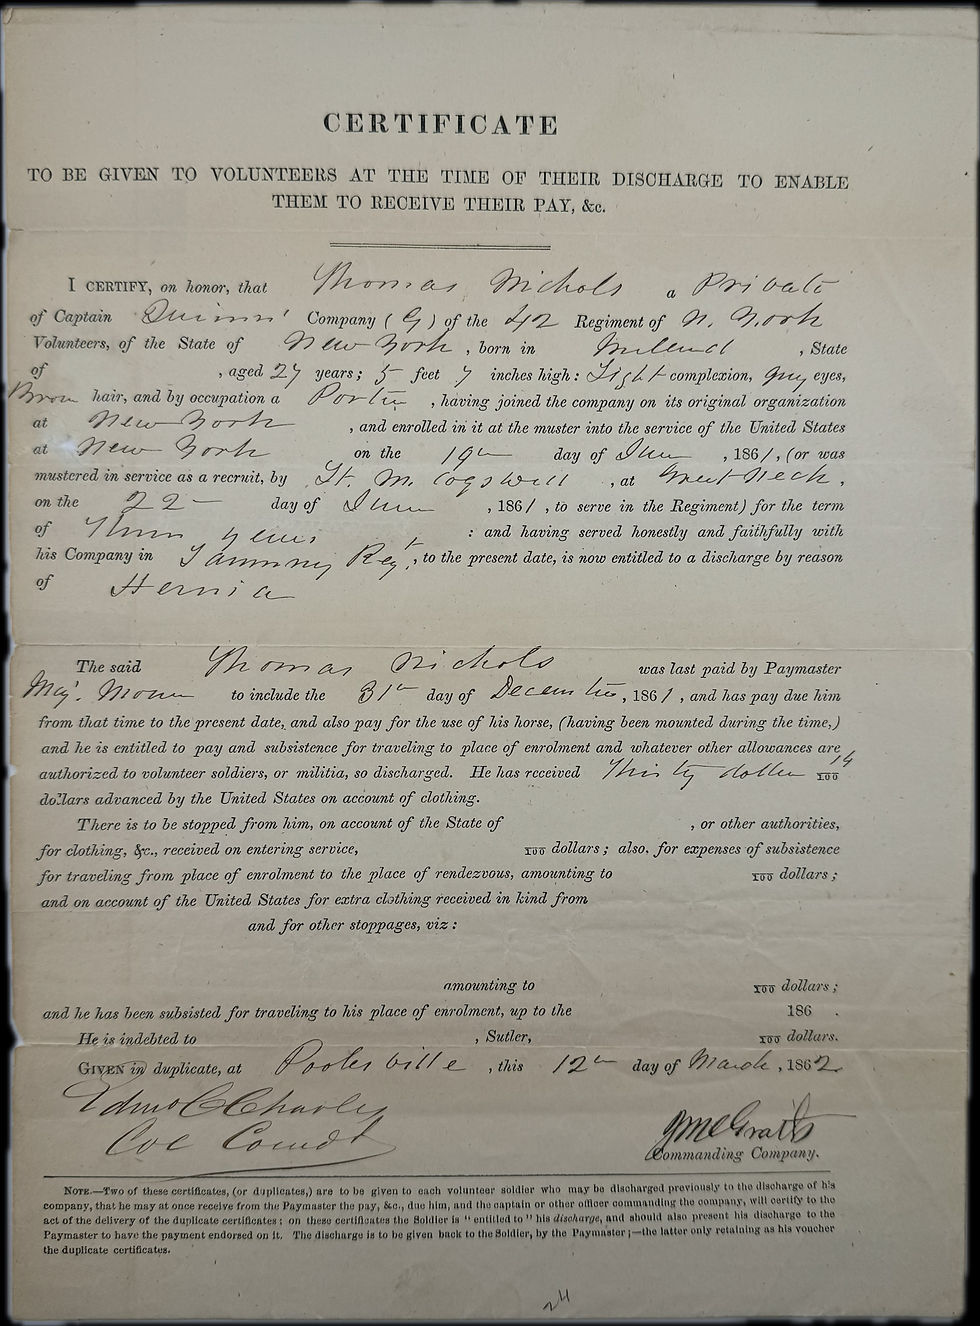 CERTIFICATE
TO BE GIVEN TO VOLUNTEERS AT THE TIME OF THEIR DISCHARGE TO ENABLE
THEM TO RECEIVE THEIR PAY, &c.
I CERTIFY, on honor, that Thomas Nichols a Private
of Captain Quinns' Company (G) of the 42 Regiment of N. York
Volunteers, of the State of New York, born in , State
of , aged 27 years; 5 feet 7 inches high: Light complexion, Grey eyes,
Brown hair, and by occupation a Porter, having joined the company on its original organization
at New York, and enrolled in it at the muster into the service of the United States
at New York on the 19th day of June, 1861, (or was
mustered in service as a recruit, by Lt. M. Cogswell, at Great Neck,
on the 22 day of June, 1861, to serve in the Regiment) for the term
of Three years : and having served honestly and faithfully with
his Company in Tammany Regt, to the present date, is now entitled to a discharge by reason
of Hernia
The said Thomas Nichols was last paid by Paymaster
Maj. to include the 31st day of December, 1861, and has pay due him
from that time to the present date, and also pay for the use of his horse, (having been mounted during the time,)
and he is entitled to pay and subsistence for traveling to place of enrolment and whatever other allowances are
authorized to volunteer soldiers, or militia, so discharged. He has received Thirty dollar 14/100
dollars advanced by the United States on account of clothing.
There is to be stopped from him, on account of the State of , or other authorities,
for clothing, &c., received on entering service, 100 dollars; also, for expenses of subsistence
for traveling from place of enrolment to the place of rendezvous, amounting to 100 dollars;
and on account of the United States for extra clothing received in kind from
and for other stoppages, viz:
amounting to 100 dollars;
and he has been subsisted for traveling to his place of enrolment, up to the 186 .
He is indebted to , Sutler, 100 dollars.
GIVEN in duplicate, at Poolesville, this 12th day of March, 1862
Edmd C Charles
Col Comdt
J McGrath
Commanding Company.
NOTE.—Two of these certificates, (or duplicates,) are to be given to each volunteer soldier who may be discharged previously to the discharge of his
company, that he may at once receive from the Paymaster the pay, &c., due him, and the captain or other officer commanding the company, will certify to the
act of the delivery of the duplicate certificates; on these certificates the Soldier is "entitled to" his discharge, and should also present his discharge to the
Paymaster to have the payment endorsed on it. The discharge is to be given back to the Soldier, by the Paymaster;—the latter only retaining as his voucher
the duplicate certificates.
24